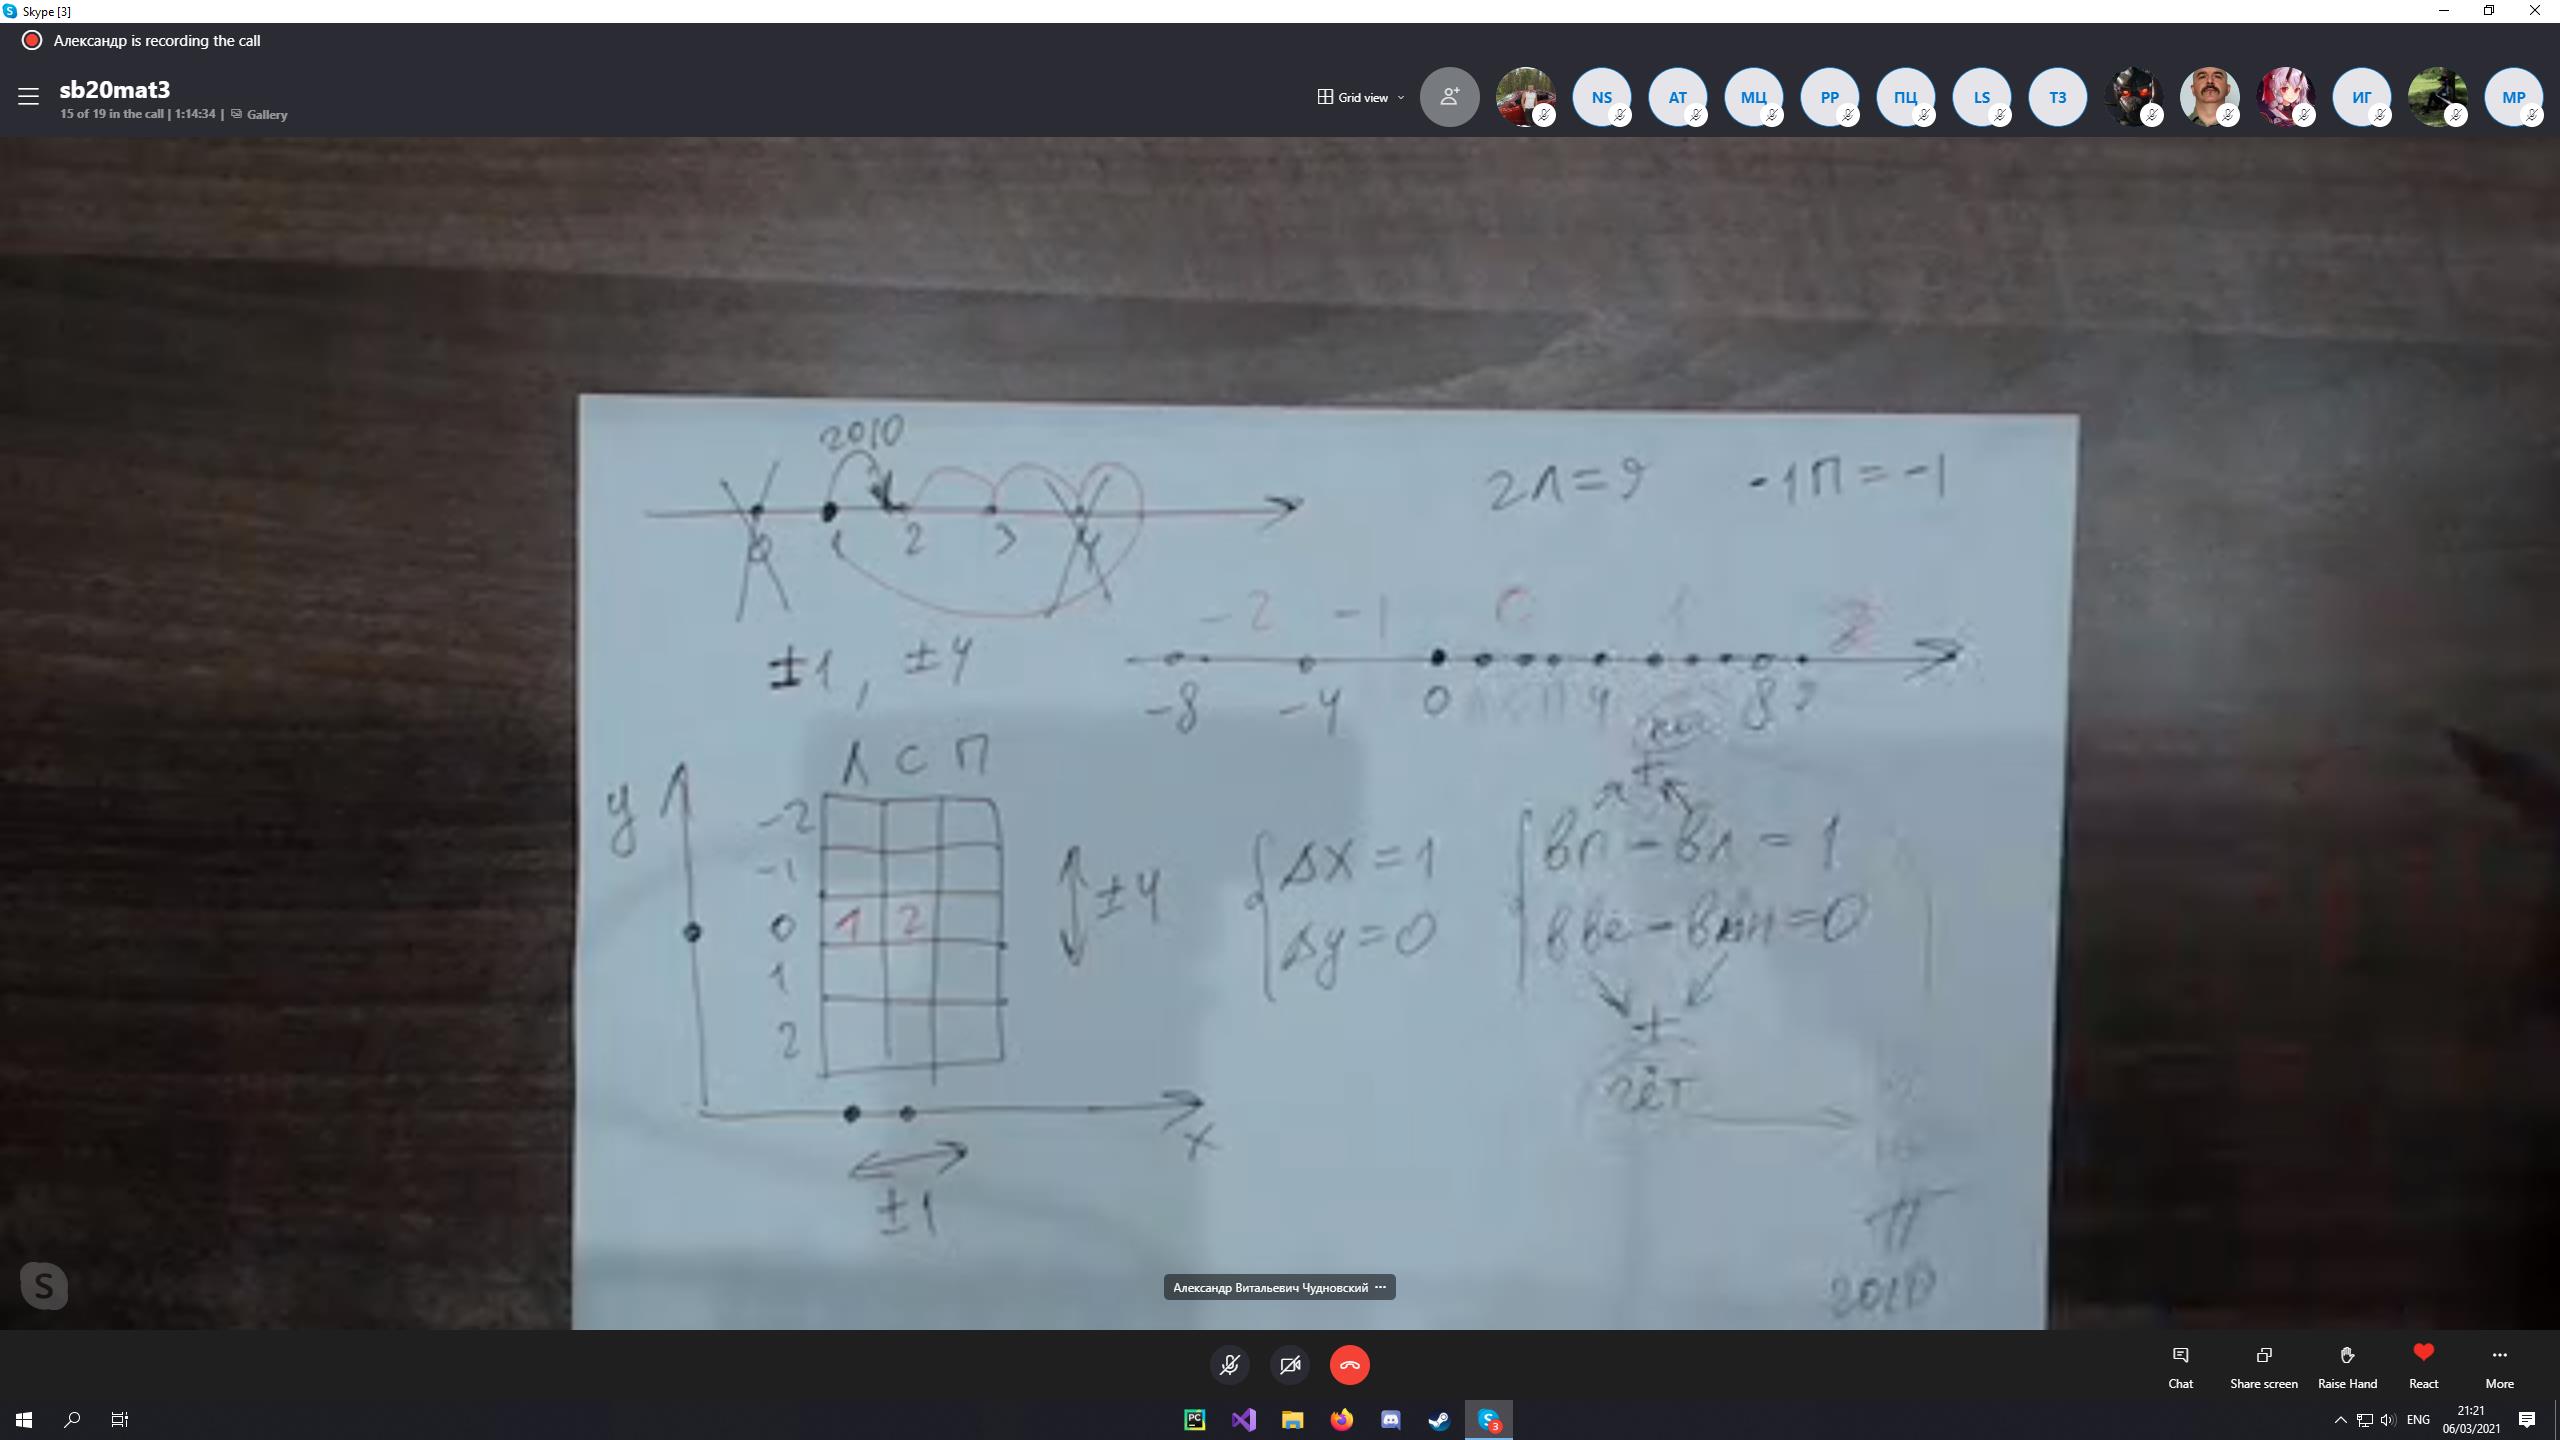 Skype [3]
Александр is recording the call
sb20mat3
15 of 19 in the call | 1:14:34 | Gallery
Grid view
NS
AT
МЦ
PP
ПЦ
LS
ТЗ
ИГ
MP
2010
2Л=9 -1П=-1
0 1 2 3 4
-2 -1 0 1 2
±1, ±4
-8 -4 0 4 8 9
Л С П
y
-2
-1
0 1 2
1
2
±4
Δx=1
Δy=0
+
вп-вл=1
вве-ввн=0
+
чёт
x
±1
2010
Александр Витальевич Чудновский ...
Chat
Share screen
Raise Hand
React
More
PC
S
3
ENG
21:21
06/03/2021